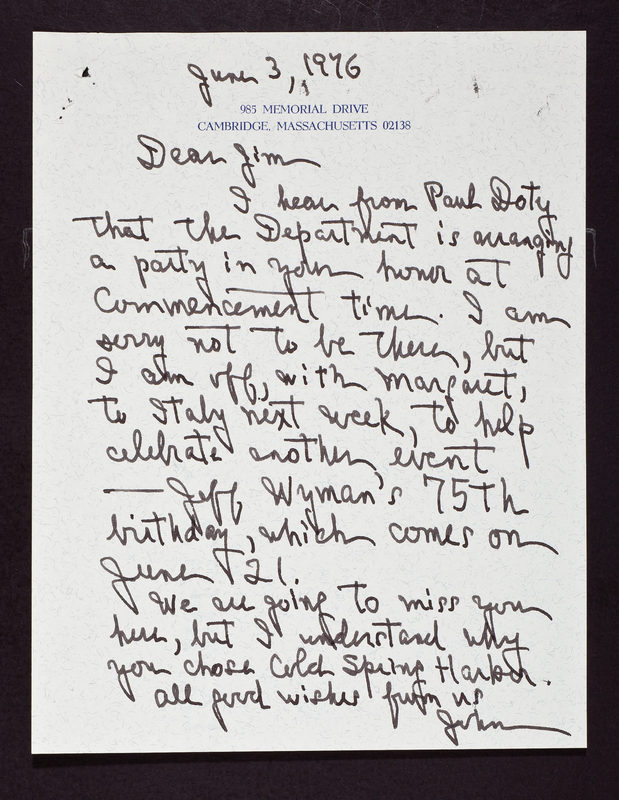 June 3, 1976
985 MEMORIAL DRIVE
CAMBRIDGE, MASSACHUSETTS 02138
Dear Jim
I hear from Paul Doty
that the Department is arranging
a party in your honor at
Commencement time. I am
sorry not to be there, but
I am off, with Margaret,
to Italy next week, to help
celebrate another event
— Jeff Wyman's 75th
birthday, which comes on
June 21.
We are going to miss you
here, but I understand why
you chose Cold Spring Harbor.
All good wishes from us
John